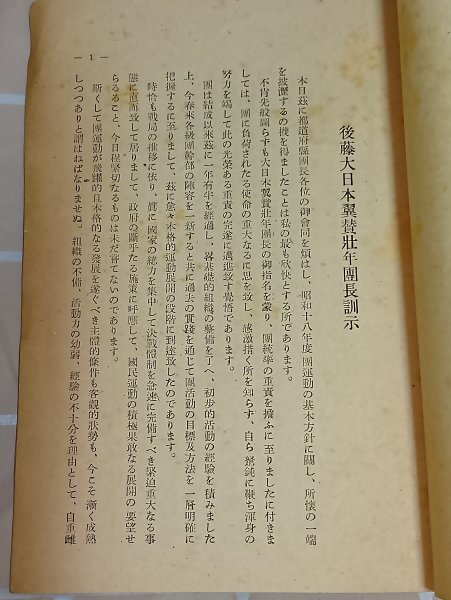 後藤大日本翼贊壯年團長訓示
本日茲に都道府縣團長各位の御會同を煩はし、昭和十八年度團運動の基本方針に關し、所懷の一端
を披瀝するの機を得ましたことは私の最も欣快とする所であります。
不肖先般圖らずも大日本翼贊壯年團長の御指名を蒙り、團統率の重責を擔ふに至りましたに付きま
しては、團に負荷されたる使命の重大なるに思を致し、感激措く所を知らず、自ら駑鈍に鞭ち渾身の
努力を竭して此の光榮ある重責の完遂に邁進致す覺悟であります。
團は結成以來茲に一年有半を經過し、畧基礎的組織の整備を了へ、初步的活動の經驗を積みました
上、今春來各級團幹部の陣容を一新すると共に過去の實踐を通じて團活動の目標及方法を一層明確に
把握するに至りまして、茲に愈々本格的運動展開の段階に到達致したのであります。
時恰も戰局の推移に依り、眞に國家の總力を集中して決戰體制を急速に完備すべき緊迫重大なる事
態に直面致して居りまして、政府の斷乎たる施策に呼應して、國民運動の積極果敢なる展開の要望せ
らるること、今日程緊切なるものは未だ嘗てないのであります。
斯くして團運動が飛躍的且本格的なる發展を遂ぐべき主體的條件も客觀的狀勢も、今こそ漸く成熟
しつつありと謂はねばなりませぬ。組織の不備、活動力の幼弱、經驗の不十分を理由として、自重雌
— 1 —